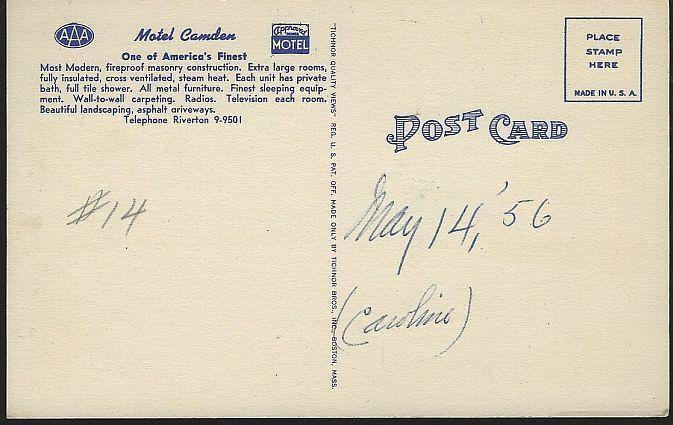 AAA
Motel Camden
Approved
MOTEL
One of America's Finest
Most Modern, fireproof masonry construction. Extra large rooms,
fully insulated, cross ventilated, steam heat. Each unit has private
bath, full tile shower. All metal furniture. Finest sleeping equip-
ment. Wall-to-wall carpeting. Radios. Television each room.
Beautiful landscaping, asphalt driveways.
Telephone Riverton 9-9501
#14
"TICHNOR QUALITY VIEWS" REG. U. S. PAT. OFF. MADE ONLY BY TICHNOR BROS., INC., BOSTON, MASS.
PLACE
STAMP
HERE
MADE IN U. S. A.
POST CARD
May 14, '56
(Caroline)